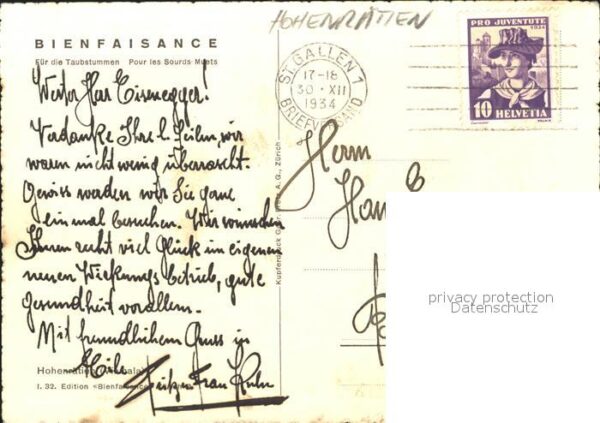 HOHENRÄTIEN
BIENFAISANCE
Für die Taubstummen Pour les Sourds-Muets
ST. GALLEN 1
17-18
30. XII
1934
BRIEFVERSAND
PRO JUVENTUTE
1934
10 HELVETIA
Werter Herr Eisenegger!
Verdanke Ihre l. Zeilen, wir
waren nicht wenig überrascht.
Gewiss werden wir Sie gane
einmal besuchen. Wir wünschen
Ihnen recht viel Glück im eigenen
neuen Wirkungsbetrieb, gute
gesundheit vorallem.
Mit freundlichem Gruss in
Eile
Frau
Herrn
Kupferdruck A. G., Zürich
Hohenrätien
I. 32. Edition «Bienfaisance
privacy protection
Datenschutz